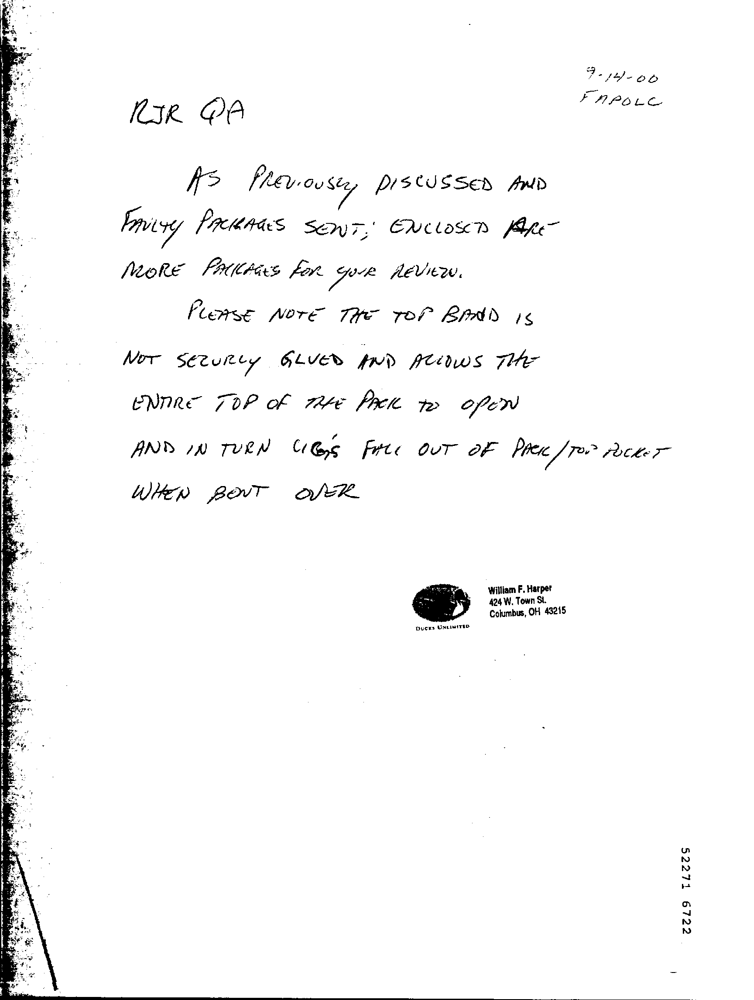 9-14-00
FAPOLC
RJR QA
AS PREVIOUSLY DISCUSSED AND
FAULTY PACKAGES SENT; ENCLOSED ARE
MORE PACKAGES FOR YOUR REVIEW.
PLEASE NOTE THE TOP BAND IS
NOT SECURLY GLUED AND ALLOWS THE
ENTIRE TOP OF THE PACK TO OPEN
AND IN TURN CIG'S FALL OUT OF PACK/TOP POCKET
WHEN BENT OVER
William F. Harper
424 W. Town St.
Columbus, OH 43215
DUCKS UNLIMITED
52271 6722